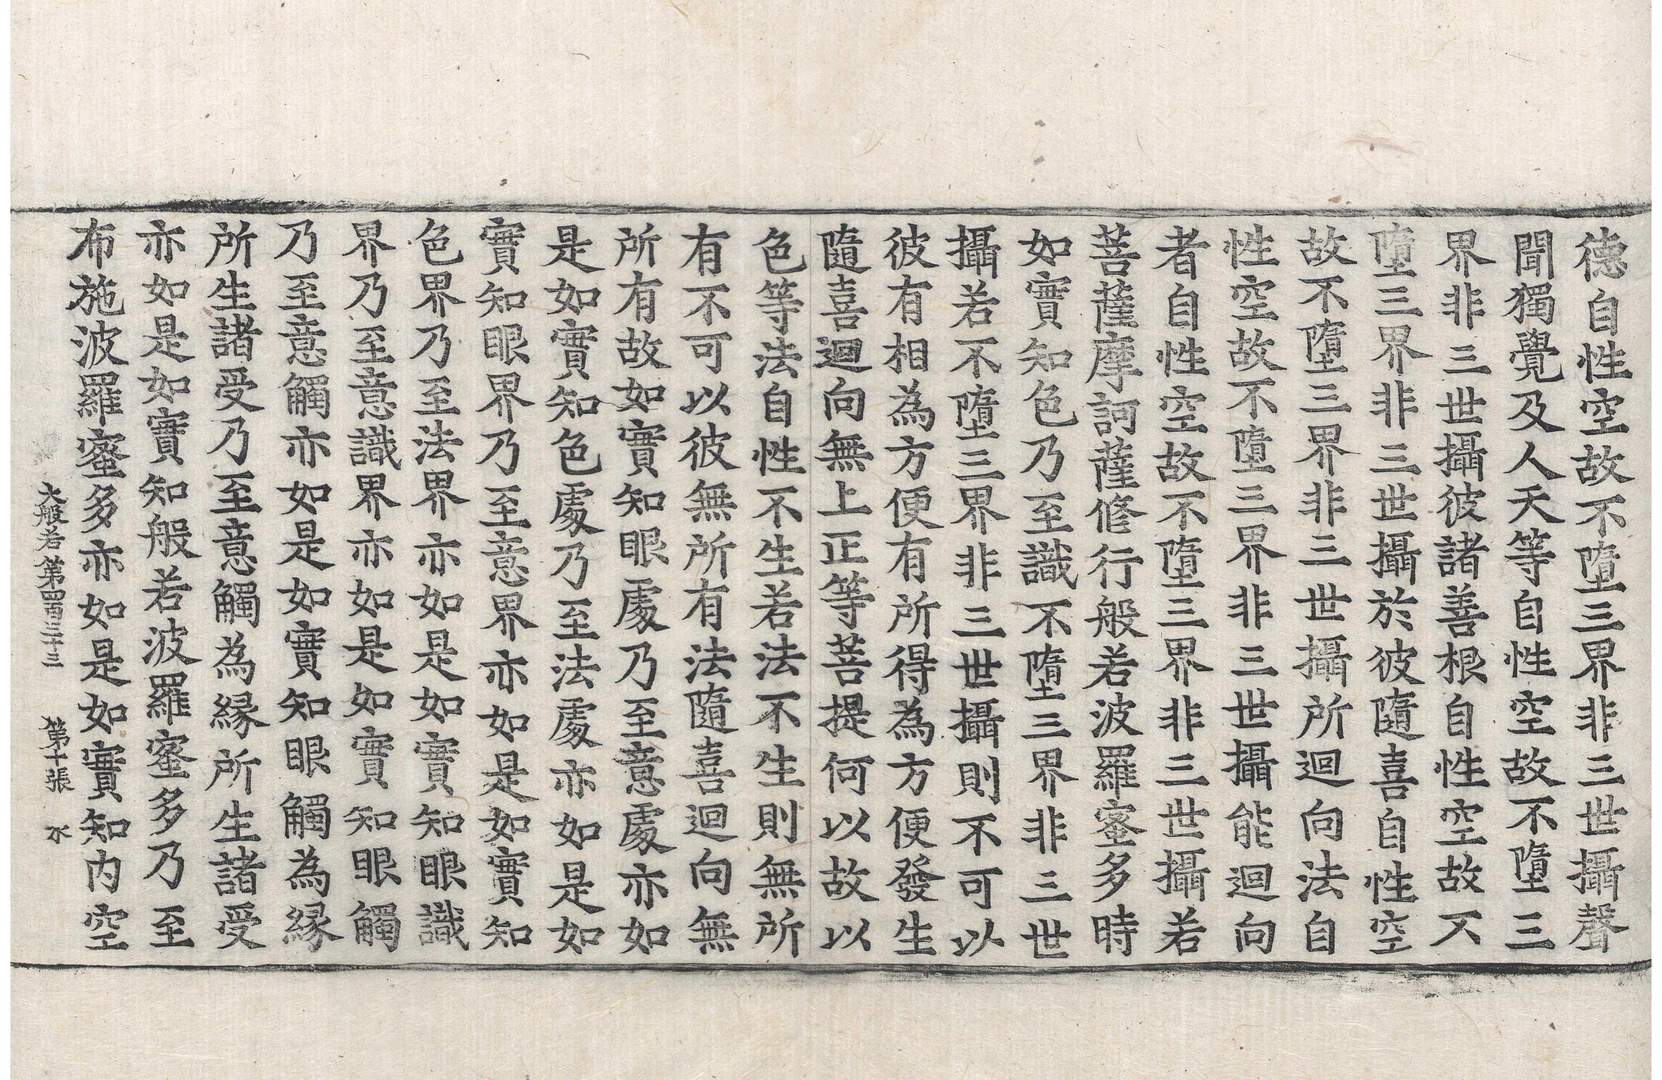 德自性空故不墮三界非三世攝聲
聞獨覺及人天等自性空故不墮三
界非三世攝彼諸善根自性空故不
墮三界非三世攝於彼隨喜自性空
故不墮三界非三世攝所迴向法自
性空故不墮三界非三世攝能迴向
者自性空故不墮三界非三世攝若
菩薩摩訶薩修行般若波羅蜜多時
如實知色乃至識不墮三界非三世
攝若不墮三界非三世攝則不可以
彼有相為方便有所得為方便發生
隨喜迴向無上正等菩提何以故以
色等法自性不生若法不生則無所
有不可以彼無所有法隨喜迴向無
所有故如實知眼處乃至意處亦如
是如實知色處乃至法處亦如是如
實知眼界乃至意界亦如是如實知
色界乃至法界亦如是如實知眼識
界乃至意識界亦如是如實知眼觸
乃至意觸亦如是如實知眼觸為緣
所生諸受乃至意觸為緣所生諸受
亦如是如實知般若波羅蜜多乃至
布施波羅蜜多亦如是如實知內空
大般若第四百三十三 第十張 水